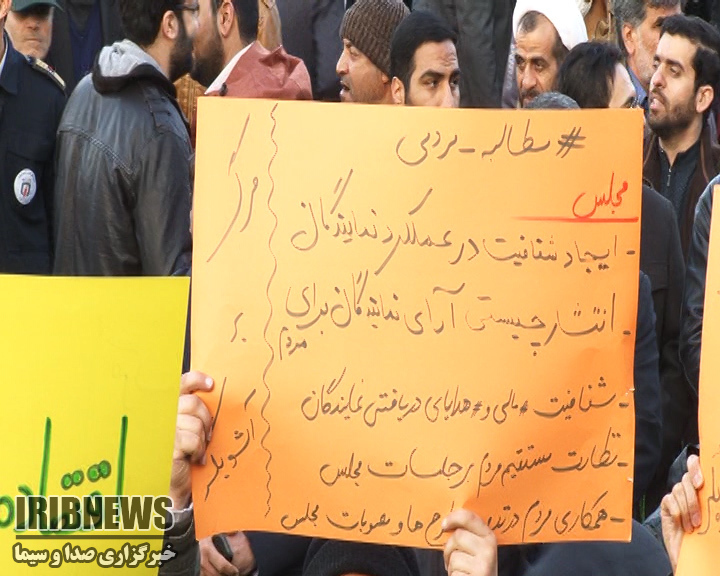 # مطالبه_مردمی
مجلس
- ایجاد شفافیت در عملکرد نمایندگان
- انتشار چیستی آرای نمایندگان برای مردم
- شفافیت مالی و هدایای دریافتی نمایندگان
- نظارت مستقیم مردم بر جلسات مجلس
- همکاری مردم در تدو طرح ها و مصوبات مجلس
مرگ
بر
آشوبگر
اقتصاد
IRIBNEWS
خبرگزاری صدا و سیما